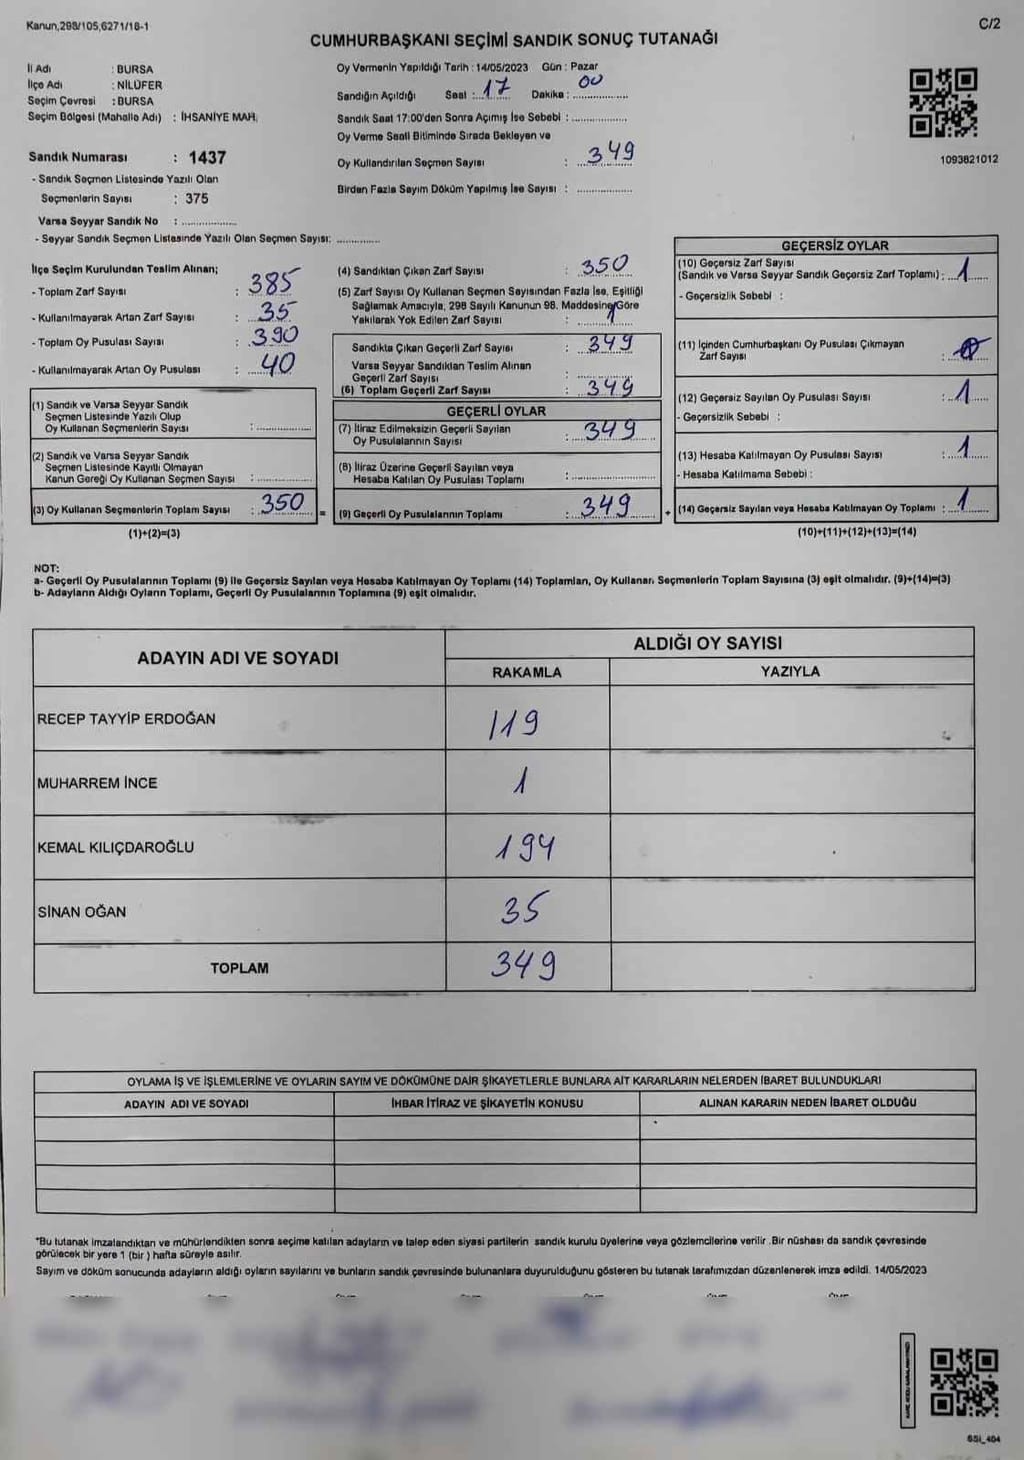 Kanun,298/105,6271/18-1
C/2
CUMHURBAŞKANI SEÇİMİ SANDIK SONUÇ TUTANAĞI
İl Adı : BURSA
İlçe Adı : NİLÜFER
Seçim Çevresi : BURSA
Seçim Bölgesi (Mahalle Adı) : İHSANİYE MAH.
Sandık Numarası : 1437
- Sandık Seçmen Listesinde Yazılı Olan
Seçmenlerin Sayısı : 375
Varsa Seyyar Sandık No : ................
- Seyyar Sandık Seçmen Listesinde Yazılı Olan Seçmen Sayısı: ............
Oy Vermenin Yapıldığı Tarih : 14/05/2023 Gün : Pazar
Sandığın Açıldığı Saat : 17 Dakika : 00
Sandık Saat 17:00'den Sonra Açımış İse Sebebi : ................
Oy Verme Saati Bitiminde Sırada Bekleyen ve
Oy Kullandırılan Seçmen Sayısı : 349
Birden Fazla Sayım Döküm Yapılmış İse Sayısı : ................
1093821012
İlçe Seçim Kurulundan Teslim Alınan;
- Toplam Zarf Sayısı : 385
- Kullanılmayarak Artan Zarf Sayısı : 35
- Toplam Oy Pusulası Sayısı : 390
- Kullanılmayarak Artan Oy Pusulası : 40
(1) Sandık ve Varsa Seyyar Sandık
Seçmen Listesinde Yazılı Olup
Oy Kullanan Seçmenlerin Sayısı : ................
(2) Sandık ve Varsa Seyyar Sandık
Seçmen Listesinde Kayıtlı Olmayan
Kanun Gereği Oy Kullanan Seçmen Sayısı : ................
(3) Oy Kullanan Seçmenlerin Toplam Sayısı : 350
(1)+(2)=(3)
(4) Sandıktan Çıkan Zarf Sayısı : 350
(5) Zarf Sayısı Oy Kullanan Seçmen Sayısından Fazla İse, Eşitliği
Sağlamak Amacıyla, 298 Sayılı Kanunun 98. Maddesine Göre
Yakılarak Yok Edilen Zarf Sayısı : 1
Sandıkta Çıkan Geçerli Zarf Sayısı : 349
Varsa Seyyar Sandıktan Teslim Alınan
Geçerli Zarf Sayısı : ................
(6) Toplam Geçerli Zarf Sayısı : 349
GEÇERLİ OYLAR
(7) İtiraz Edilmeksizin Geçerli Sayılan
Oy Pusulalarının Sayısı : 349
(8) İtiraz Üzerine Geçerli Sayılan veya
Hesaba Katılan Oy Pusulası Toplamı : ................
= (9) Geçerli Oy Pusulalarının Toplamı : 349
GEÇERSİZ OYLAR
(10) Geçersiz Zarf Sayısı
(Sandık ve Varsa Seyyar Sandık Geçersiz Zarf Toplamı) : 1
- Geçersizlik Sebebi :
(11) İçinden Cumhurbaşkanı Oy Pusulası Çıkmayan
Zarf Sayısı :
(12) Geçersiz Sayılan Oy Pusulası Sayısı : 1
- Geçersizlik Sebebi :
(13) Hesaba Katılmayan Oy Pusulası Sayısı : 1
- Hesaba Katılmama Sebebi :
+ (14) Geçersiz Sayılan veya Hesaba Katılmayan Oy Toplamı : 1
(10)+(11)+(12)+(13)=(14)
NOT:
a- Geçerli Oy Pusulalarının Toplamı (9) ile Geçersiz Sayılan veya Hesaba Katılmayan Oy Toplamı (14) Toplamları, Oy Kullanan Seçmenlerin Toplam Sayısına (3) eşit olmalıdır. (9)+(14)=(3)
b- Adayların Aldığı Oyların Toplamı, Geçerli Oy Pusulalarının Toplamına (9) eşit olmalıdır.
ADAYIN ADI VE SOYADI
ALDIĞI OY SAYISI
RAKAMLA YAZIYLA
RECEP TAYYİP ERDOĞAN 119
MUHARREM İNCE 1
KEMAL KILIÇDAROĞLU 194
SİNAN OĞAN 35
TOPLAM 349
OYLAMA İŞ VE İŞLEMLERİNE VE OYLARIN SAYIM VE DÖKÜMÜNE DAİR ŞİKAYETLERLE BUNLARA AİT KARARLARIN NELERDEN İBARET BULUNDUKLARI
ADAYIN ADI VE SOYADI İHBAR İTİRAZ VE ŞİKAYETİN KONUSU ALINAN KARARIN NEDEN İBARET OLDUĞU
*Bu tutanak imzalandıktan ve mühürlendikten sonra seçime katılan adayların ve talep eden siyasi partilerin sandık kurulu üyelerine veya gözlemcilerine verilir .Bir nüshası da sandık çevresinde
görülecek bir yere 1 (bir ) hafta süreyle asılır.
Sayım ve döküm sonucunda adayların aldığı oyların sayılarını ve bunların sandık çevresinde bulunanlara duyurulduğunu gösteren bu tutanak tarafımızdan düzenlenerek imza edildi. 14/05/2023